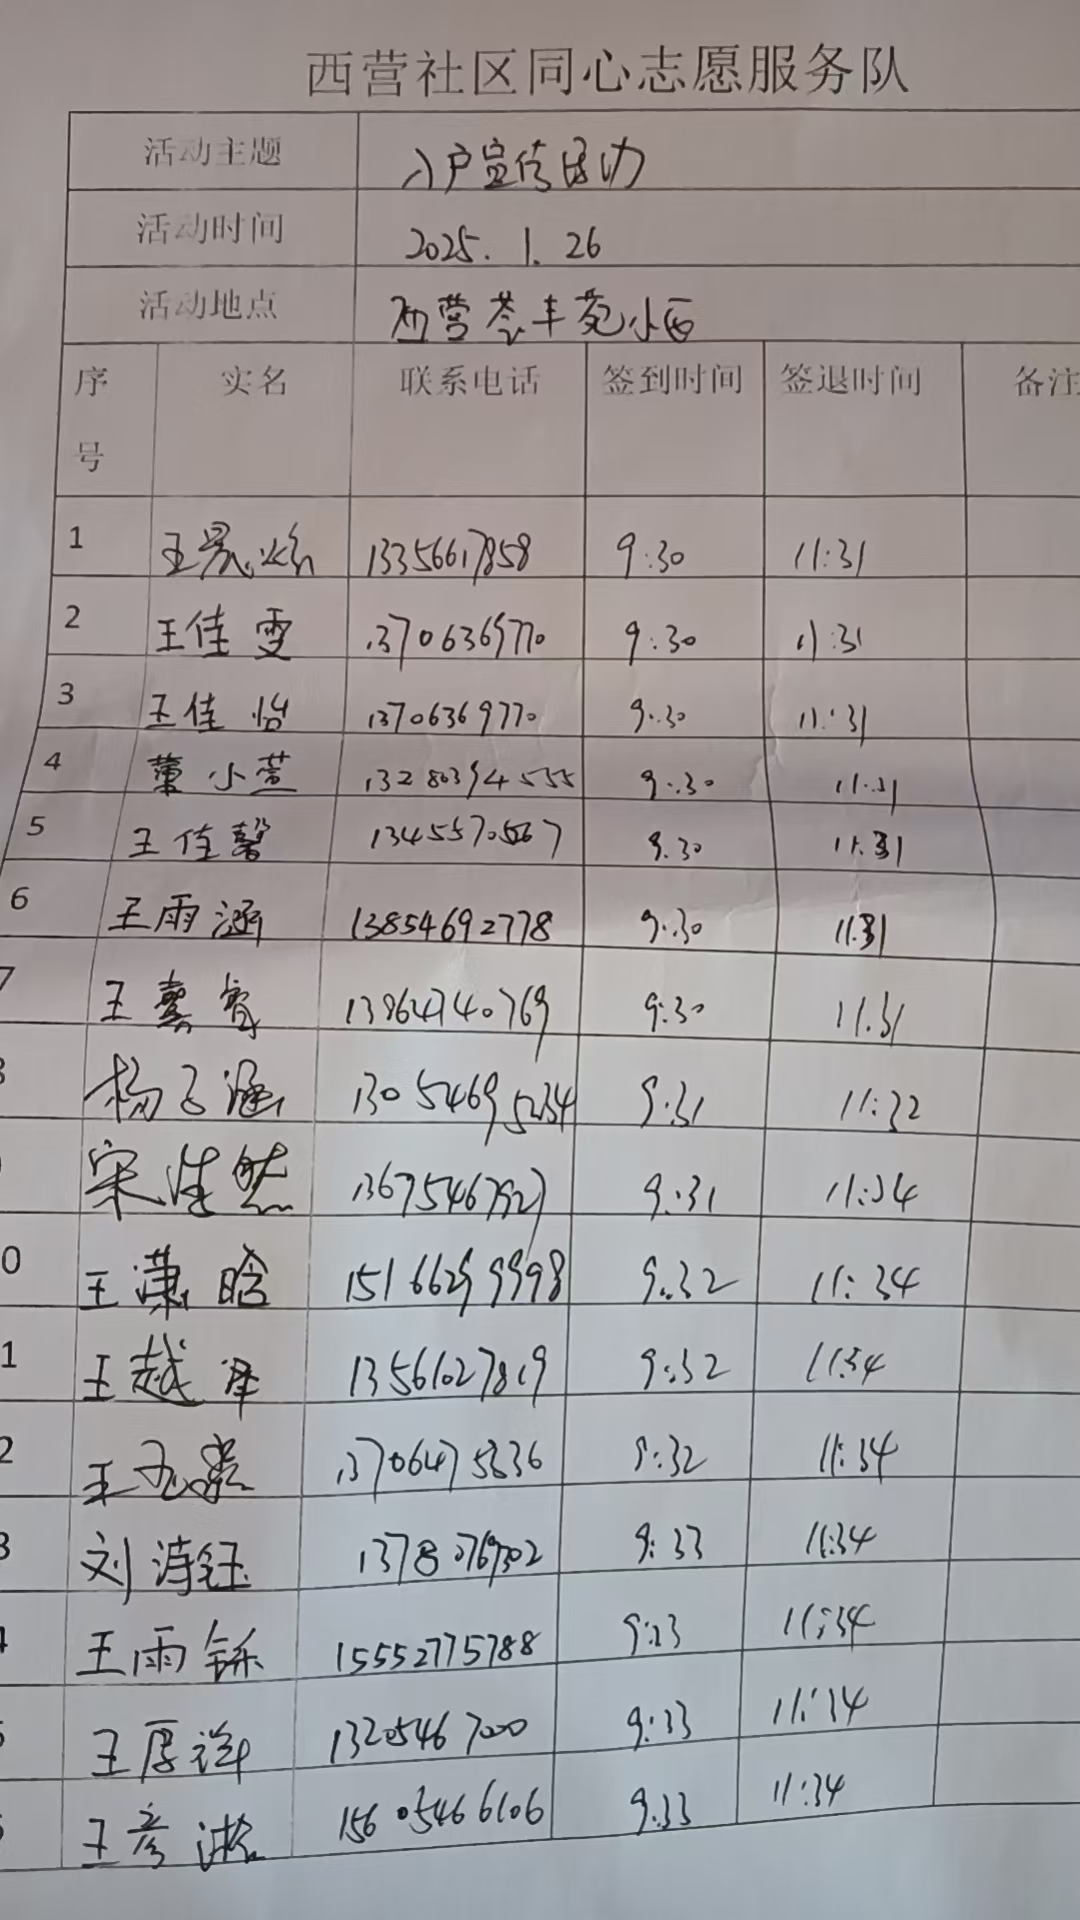 西营社区同心志愿服务队
活动主题 入户宣传活动
活动时间 2025.1.26
活动地点 西营荟丰苑小区
序号 实名 联系电话 签到时间 签退时间 备注
1 王 13356617858 9:30 11:31
2 王佳雯 13706369770 9:30 11:31
3 王佳怡 13706369770 9:30 11:31
4 董小萱 13280394555 9:30 11:31
5 王佳馨 9:30 11:31
6 王雨涵 13854692778 9:30 11:31
7 王 13864740769 9:30 11:31
杨子涵 13054695234 9:31 11:32
宋浩然 13675467927 9:31 11:34
0 王潇晗 15166299998 9:32 11:34
1 王越泽 13561027819 9:32 11:34
2 王 13706475336 9:32 11:34
3 刘诗钰 13780769302 9:33 11:34
王雨铄 15552775788 9:33 11:34
王厚祥 13205467000 9:33 11:34
王彦淞 15605466106 9:33 11:34